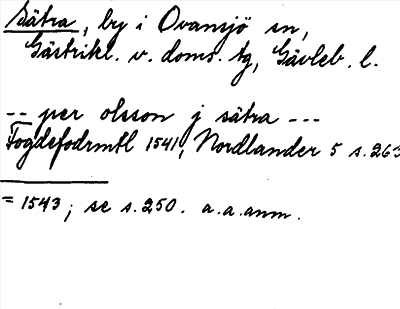 Sätra, by i Ovansjö sn,
Gästrikl. v. doms. tg, Gävleb. l.
-- per olsson j sätra ---
Fogdefodrmtl 1541, Nordlander 5 s. 263
= 1543; se s. 250. a.a. anm.